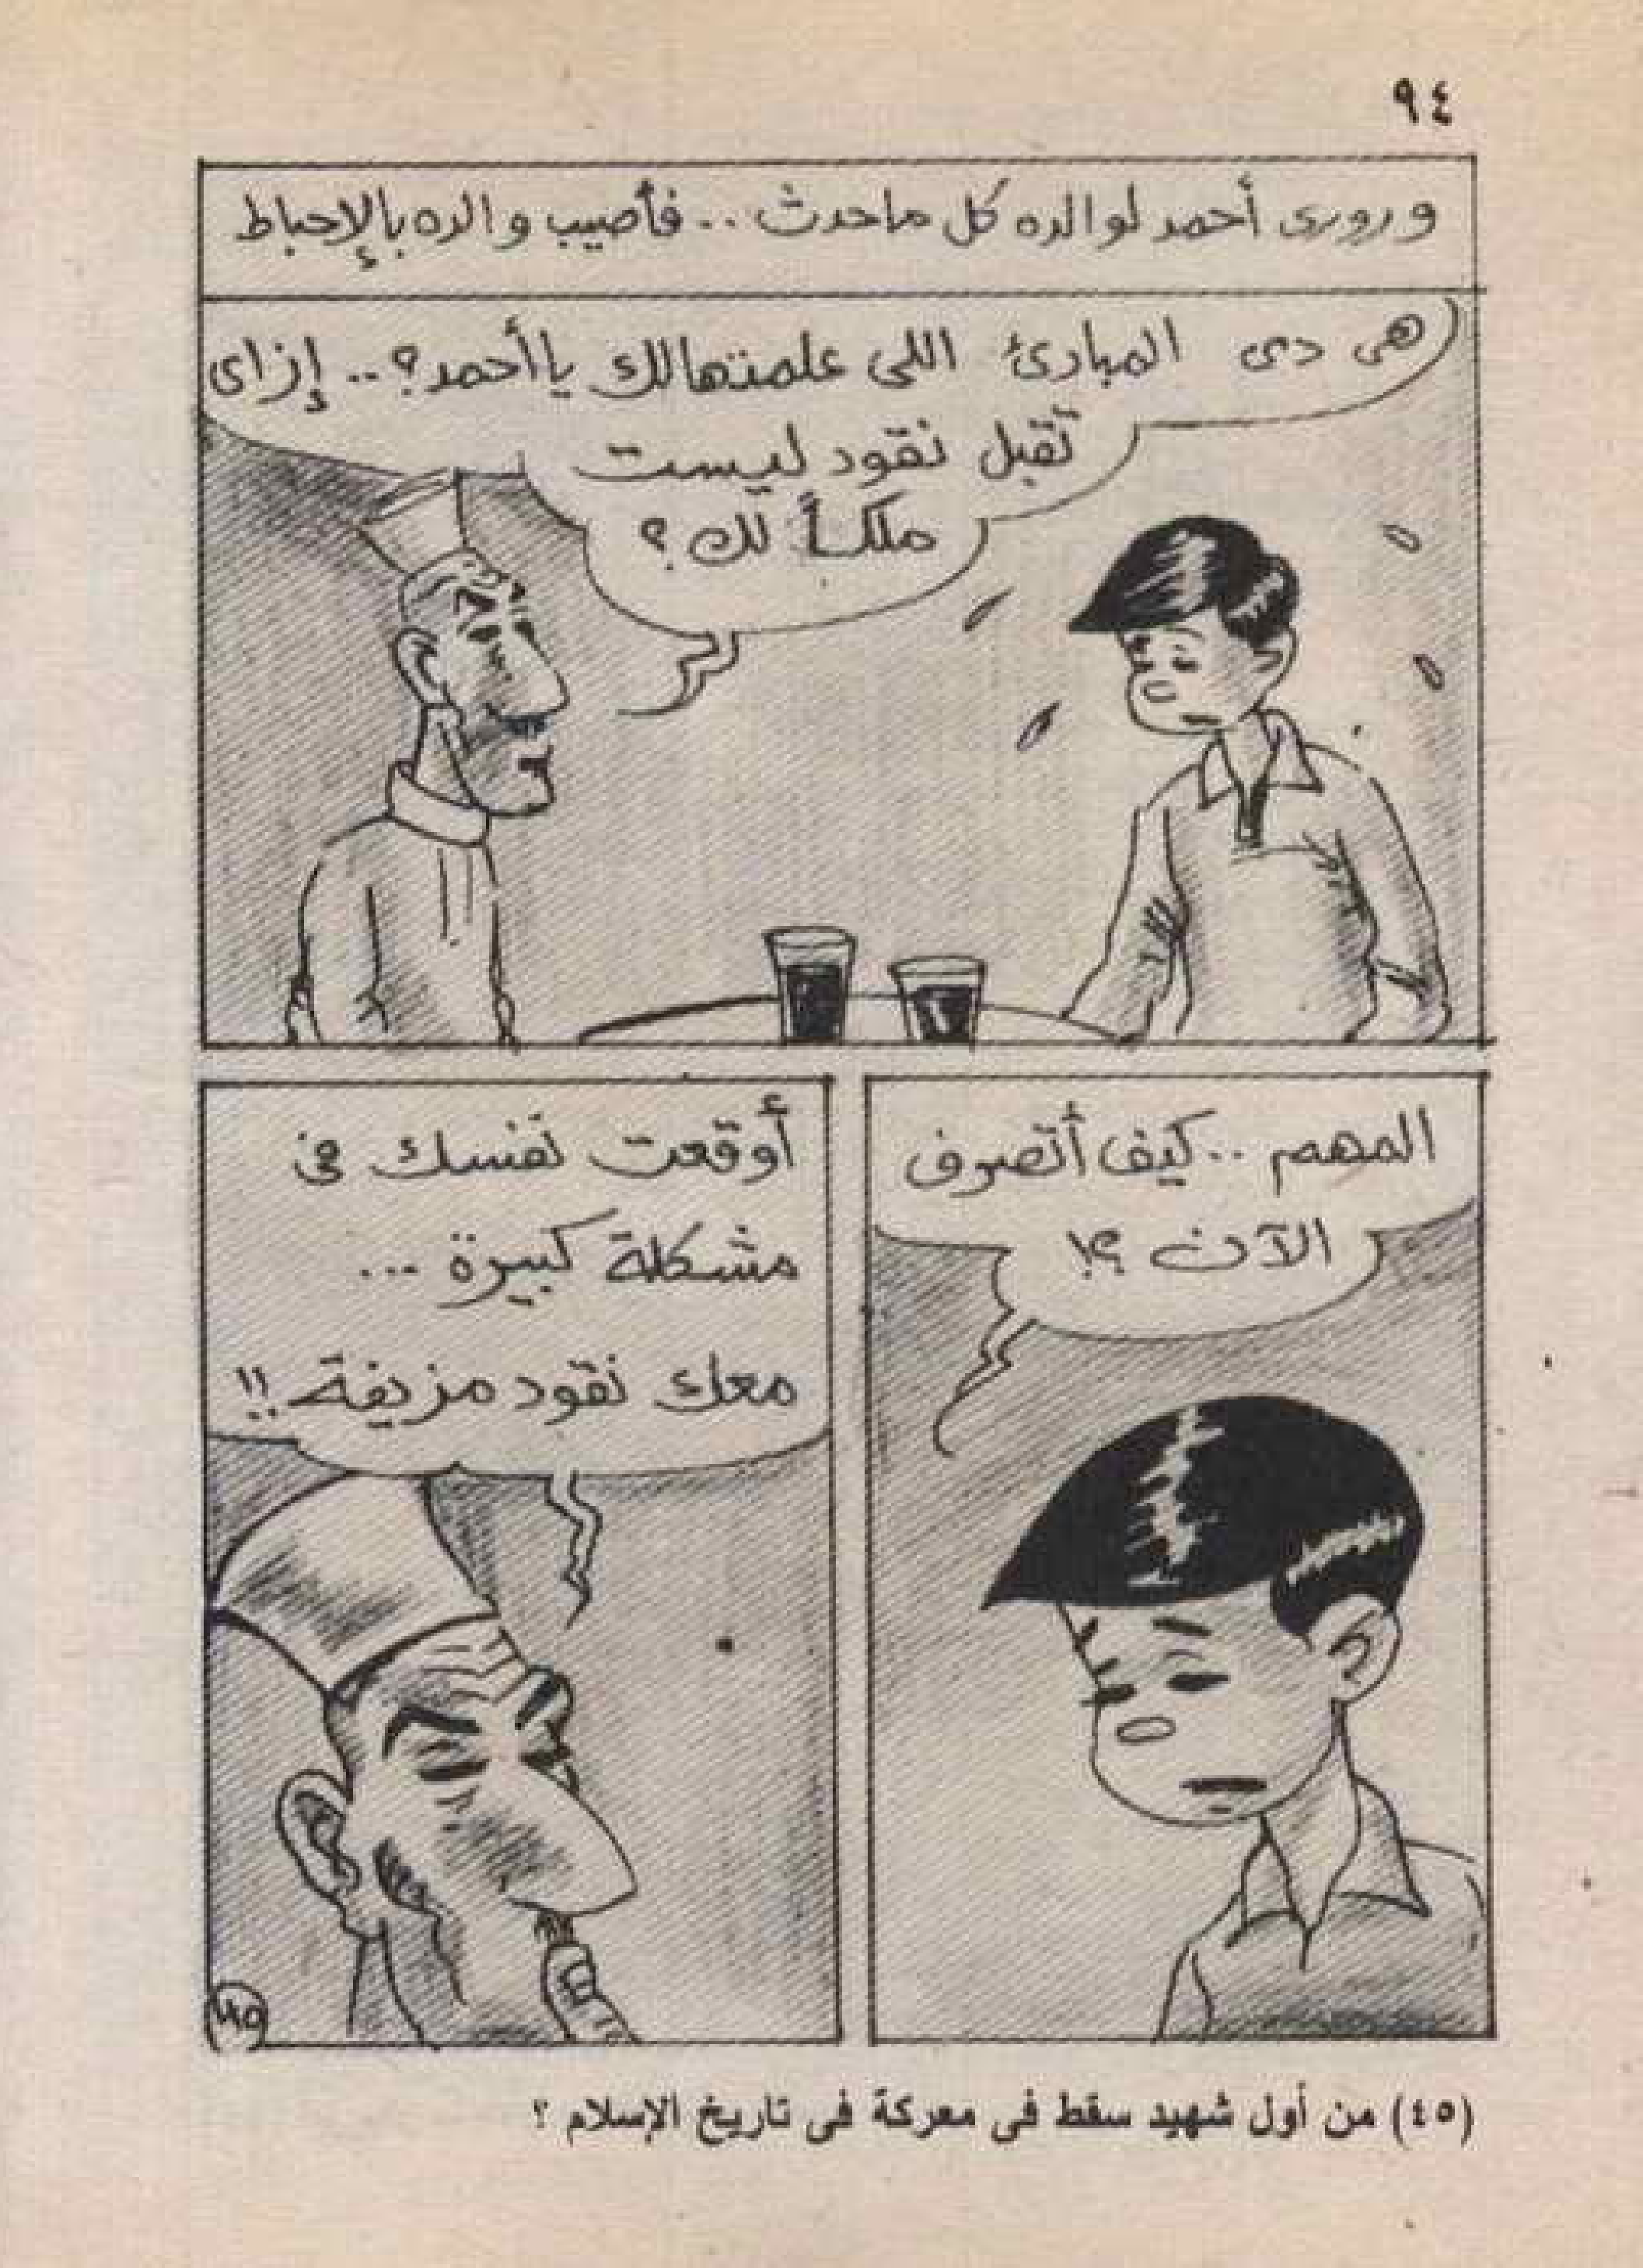 ٩٤
وروى أحمد لوالده كل ماحدث .. فأصيب والده بالإحباط
هى دى المبادئ اللى علمتهالك ياأحمد؟ .. إزاى
تقبل نقود ليست
ملكاً لك ؟
المهم .. كيف أتصرف
الآن ؟!
أوقعت نفسك فى
مشكلة كبيرة ...
معك نقود مزيفة !!
(٤٥) من أول شهيد سقط فى معركة فى تاريخ الإسلام ؟